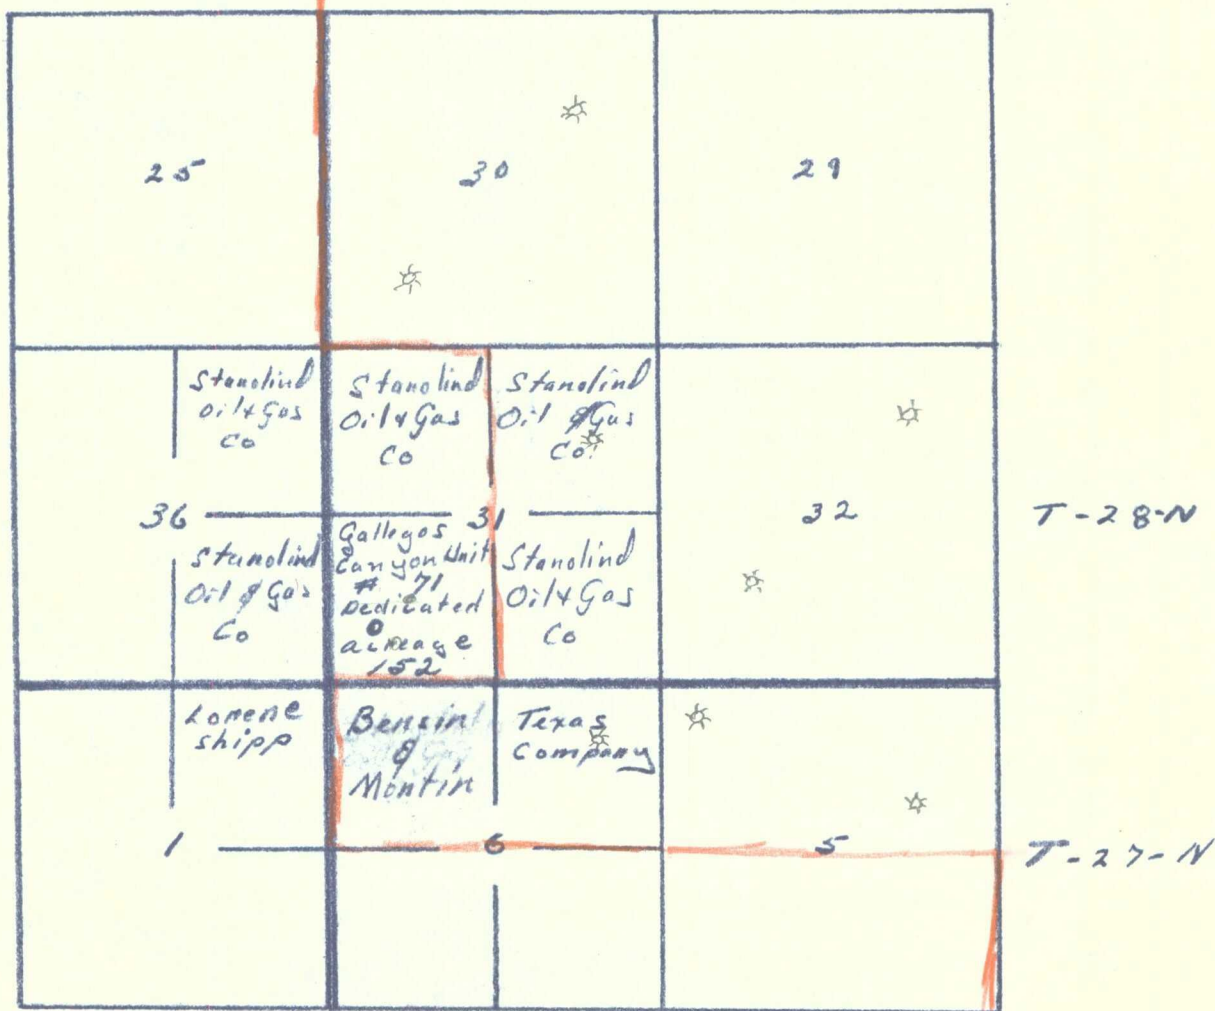 25
30
29
Stanolind
Oil & Gas
Co
Stanolind
Oil & Gas
Co
Stanolind
Oil & Gas
Co.
36
31
32
T-28-N
Stanolind
Oil & Gas
Co
Gallegos
Canyon Unit
# 71
Dedicated
acreage
152
Stanolind
Oil & Gas
Co
Lorene
Shipp
Bensin
&
Montin
Texas
Company
1
6
5
T-27-N